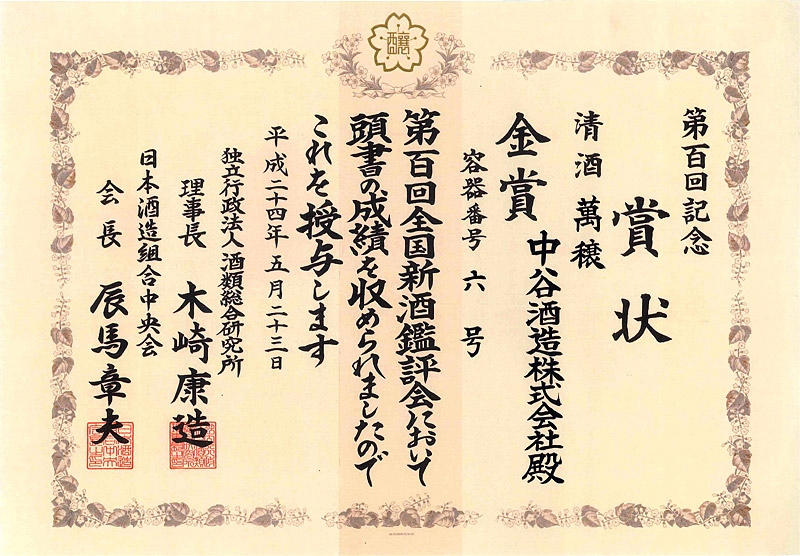 醸
第百回記念
賞状
清酒 萬穣
中谷酒造株式会社殿
金賞
容器番号 六 号
第百回全国新酒鑑評会において
頭書の成績を収められましたので
これを授与します
平成二十四年五月二十三日
独立行政法人酒類総合研究所
理事長 木崎康造
日本酒造組合中央会
会長 辰馬章夫